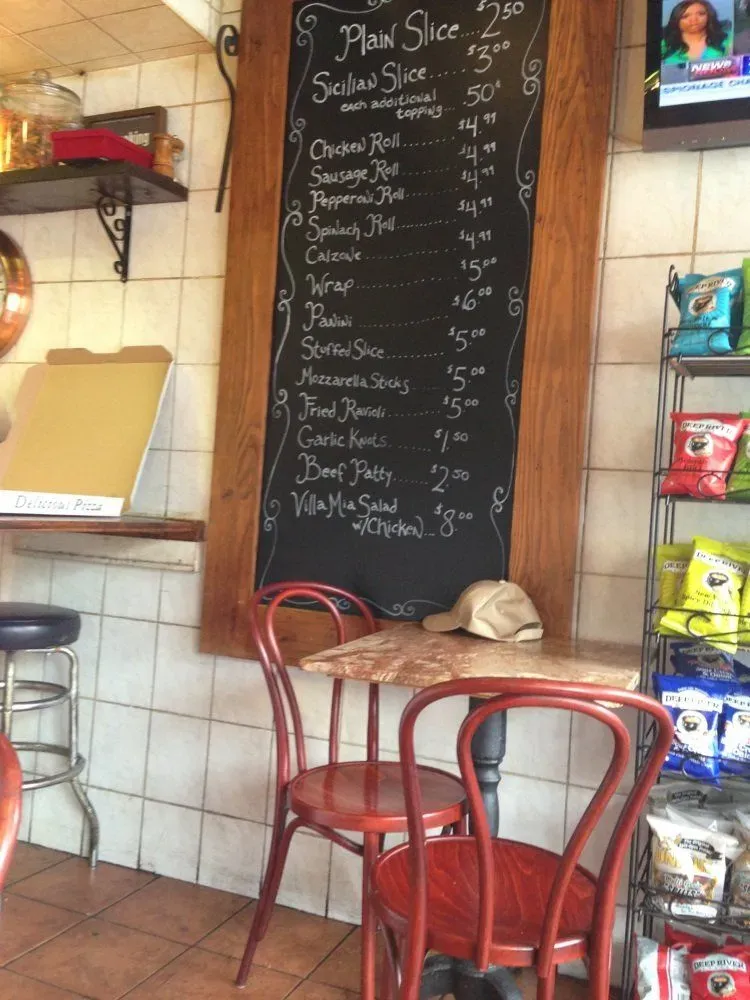 Plain Slice.... $2.50
Sicilian Slice...... $3.00
each additional
topping... .50¢
Chicken Roll $4.99
Sausage Roll $4.99
Pepperoni Roll $4.99
Spinach Roll...... $4.99
Calzone......... $4.99
Wrap........... $5.00
Panini............ $6.00
Stuffed Slice....... $5.00
Mozzarella Sticks.... $5.00
Fried Ravioli........ $5.00
Garlic Knots...... $1.50
Beef Patty..... $2.50
Villa Mia Salad
w/Chicken... $8.00
NEWS
Delicious Pizza
DEEP RIVER
DEEP RIVER
DEEP RIVER
DEEP RIVER
DEEP RIVER